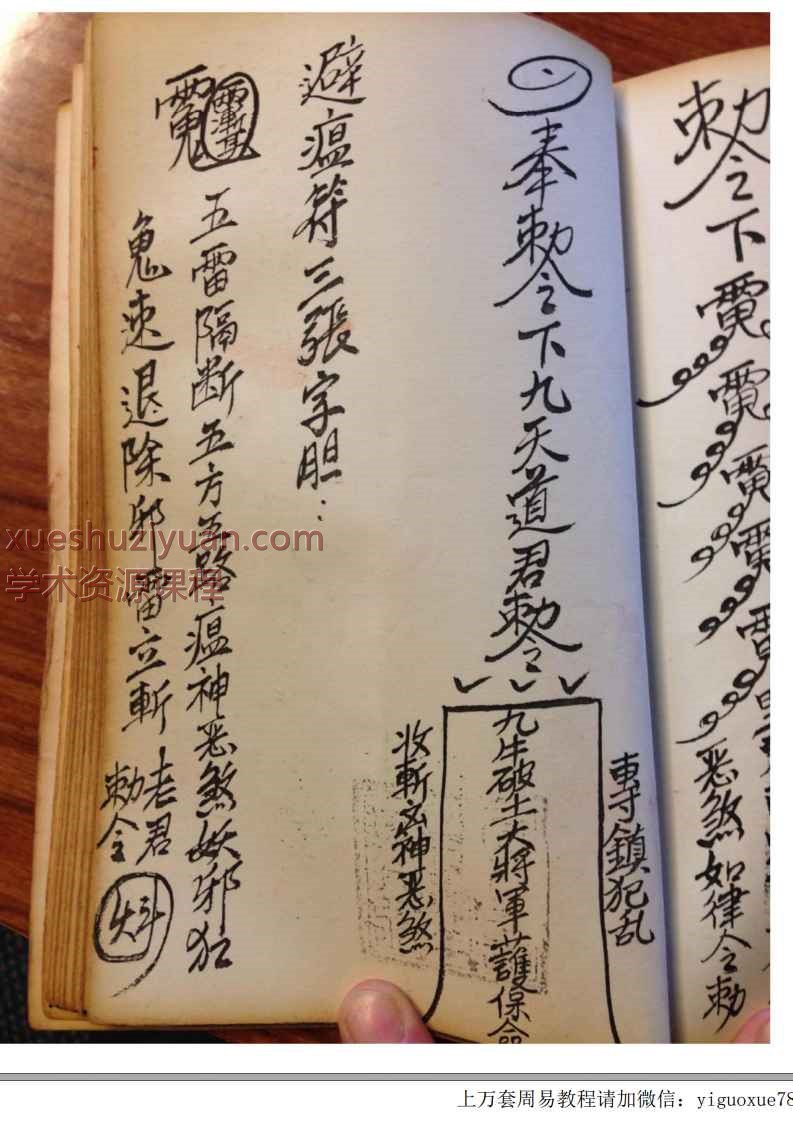 勅令下
恶煞如律令勅
奉勅令下九天道君勅令
專鎮犯乱
九牛破土大將軍護保命
收斬凶神恶煞
避瘟符三張字胆：
五雷隔断五方五路瘟神恶煞妖邪犯
鬼速退除邪雷立斬老君
勅令
xueshuziyuan.com
学术资源课程
上万套周易教程请加微信：yiguoxue78